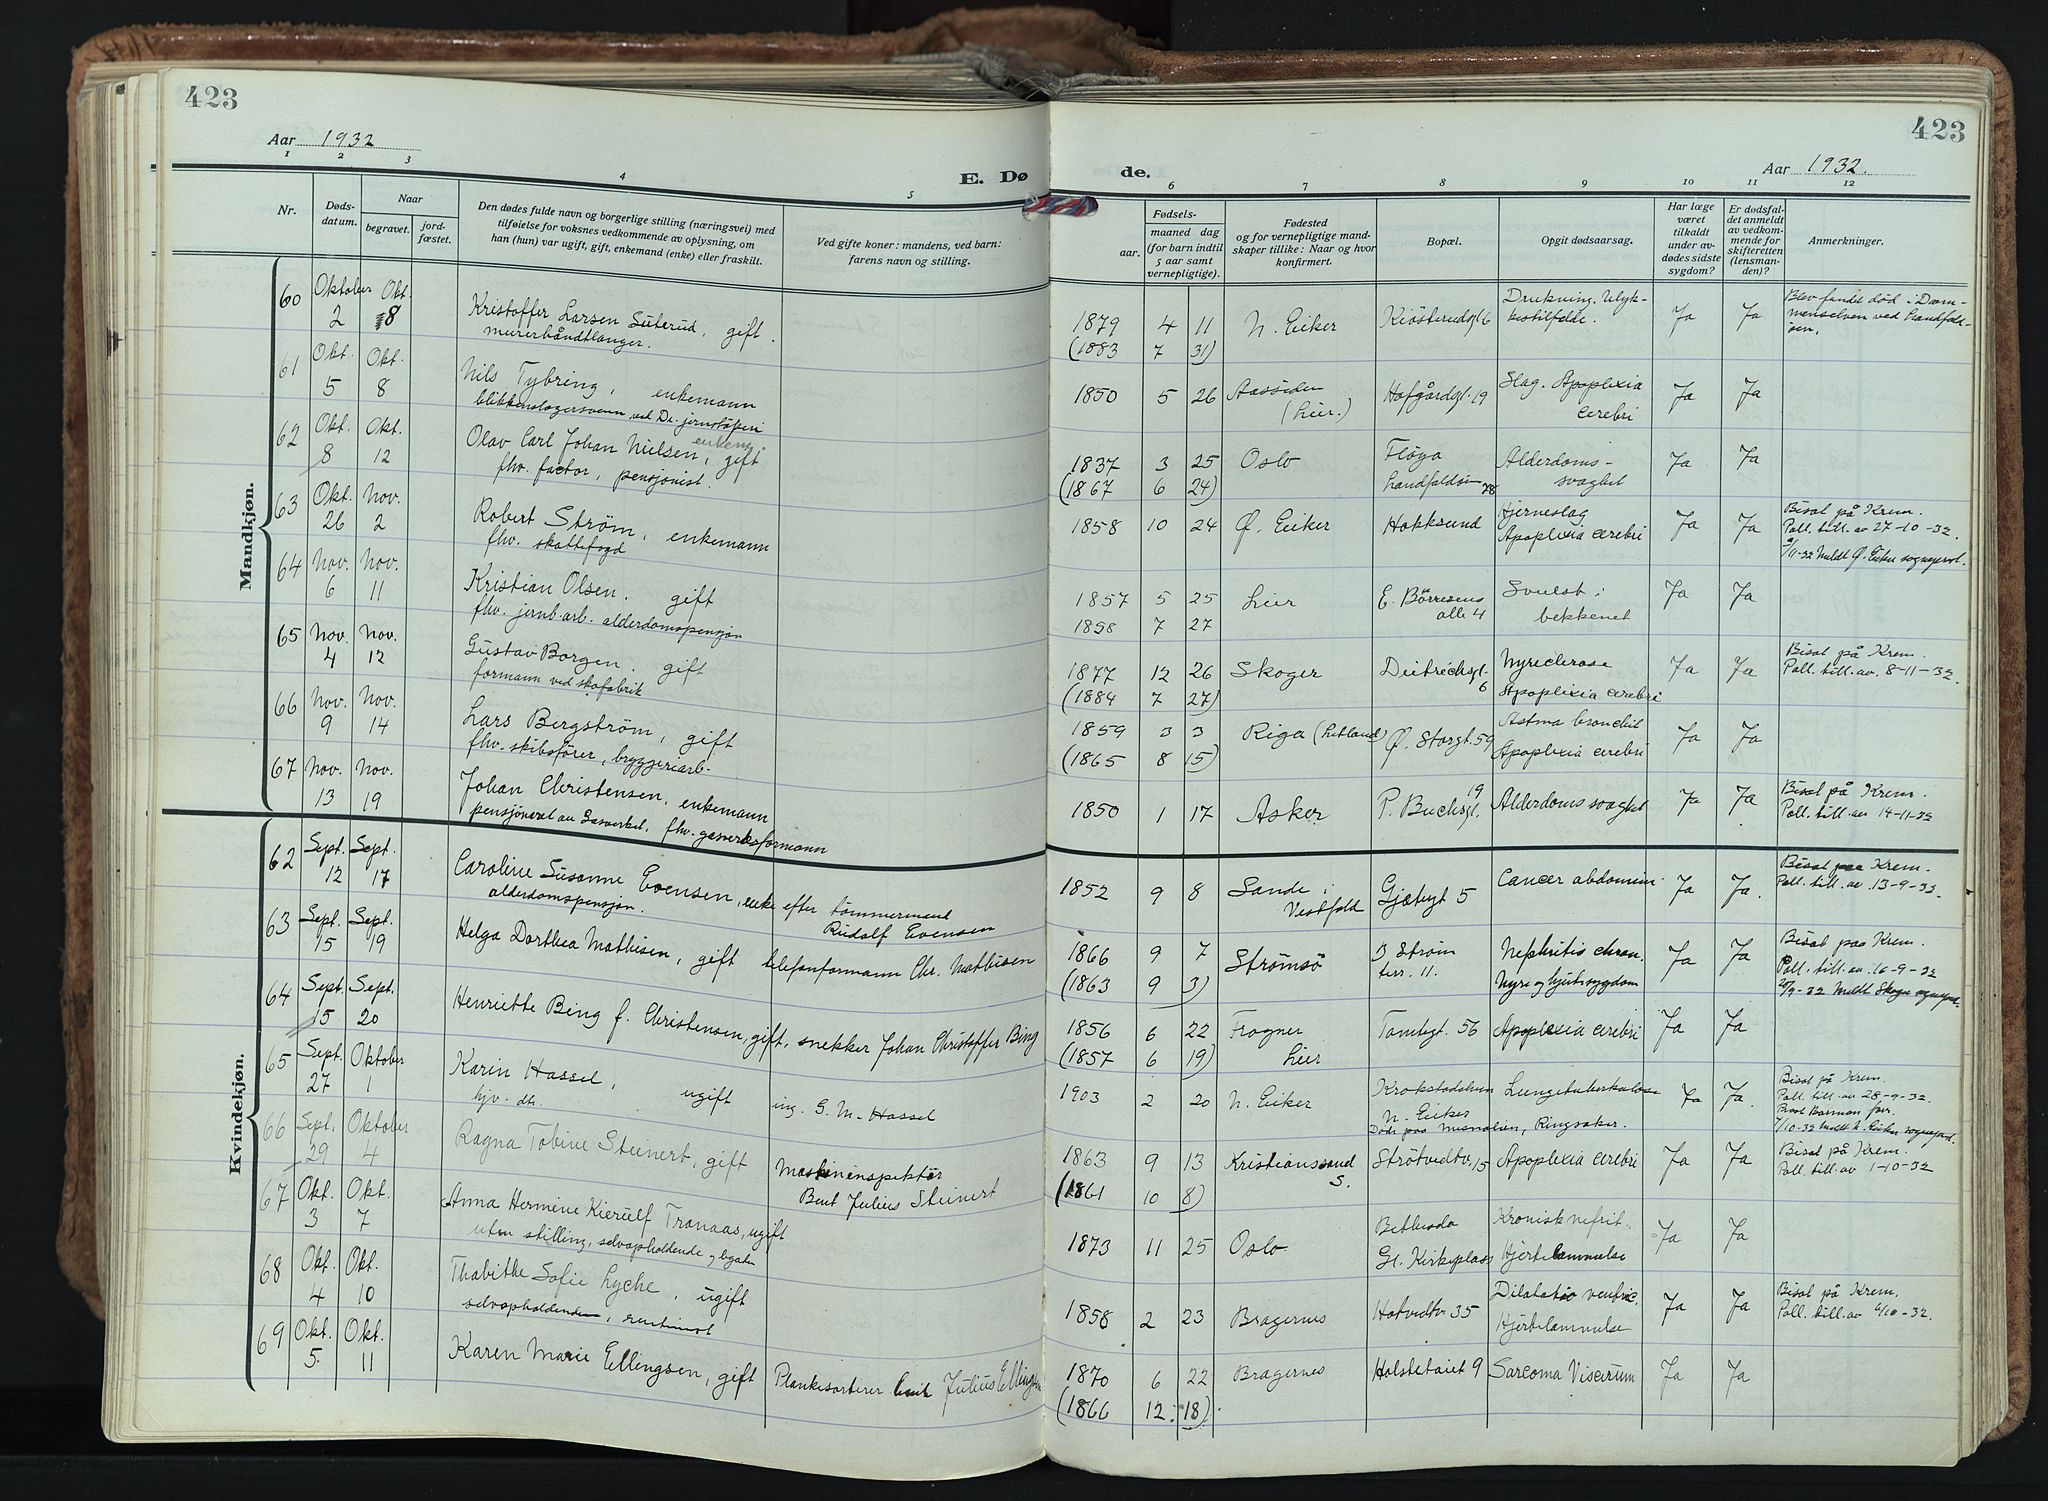 423
Aar 1932
1 2 3 4 5
E. Dø
Nr.
Døds-
datum.
Naar
begravet.
jord-
fæstet.
Den dødes fulde navn og borgerlige stilling (næringsvei) med
tilføielse for voksnes vedkommende av oplysning, om
han (hun) var ugift, gift, enkemand (enke) eller fraskilt.
Ved gifte koner: mandens, ved barn:
farens navn og stilling.
Mandkjøn.
60 Oktober 2 Okt. 8
Kristoffer Larsen Suterud, gift.
murerhåndtlanger.
61 Okt. 5 Okt. 8
Nils Tybring, enkemann
blikkenslagersvenn ved Dr. jernstøperi
62 Okt. 8 Okt. 12
Olav Carl Johan Nielsen, gift enkem.
fhv. factor, pensjonist.
63 Okt. 26 Nov. 2
Robert Strøm, enkemann
fhv. skattefogd
64 Nov. 6 Nov. 11
Kristian Olsen. gift
fhv. jernb.arb. alderdomspensjon
65 Nov. 4 Nov. 12
Gustav Borgen. gift
formann ved skofabrik
66 Nov. 9 Nov. 14
Lars Bergström, gift
fhv. skibsfører, bryggeriarb.
67 Nov. 13 Nov. 19
Johan Christensen, enkemann
pensjonert av Gasverket, fhv. gasverksformann
Kvindekjøn.
62 Sept. 12 Sept. 17
Caroline Susanne Evensen, enke efter tømmermand
alderdomspensjon. Rudolf Evensen
63 Sept. 15 Sept. 19
Helga Dorthea Mathisen, gift telefonformann Chr. Mathisen
64 Sept. 15 Sept. 20
Henriette Bing f. Christensen, gift, snekker Johan Christoffer Bing
65 Sept. 27 Oktober 1
Karin Hassel, ugift ing. G. M. Hassel
hjv. dtr.
66 Sept. 29 Oktober 4
Ragna Tobine Steinert, gift Maskininspektør
Bent Julius Steinert
67 Okt. 3 Okt. 7
Anna Hermine Kierulf Tronaas, ugift
uten stilling, selvopholdende og legater
68 Okt. 4 Okt. 10
Thabithe Sofie Lyche, ugift
selvopholdende, rentenist
69 Okt. 5 Okt. 11
Karen Marie Ellingsen, gift Plankesorterer Emil Julius Ellingsen
423
Aar 1932.
de.
6 7 8 9 10 11 12
Fødsels-
aar.
maaned dag
(for barn indtil
5 aar samt
vernepligtige).
Fødested
og for vernepligtige mand-
skaper tillike: Naar og hvor
konfirmert.
Bopæl.
Opgit dødsaarsag.
Har læge
været
tilkaldt
under av-
dødes sidste
sygdom?
Er dødsfal-
det anmeldt
av vedkom-
mende for
skifteretten
(lensman-
den)?
Anmerkninger.
1879 4 11 N. Eiker Kiøsterudgt 6 Drukning. Ulyk-
kestilfelde. Ja Ja Blev fundet død i Dram-
menselven ved Landfald-
øen.
(1883 7 31)
1850 5 26 Aassiden
(Lier.) Hofgårdsgt. 19 Slag. Apoplexia
cerebri Ja Ja
1837 3 25 Oslo Fløya
Landfaldøen 78 Alderdoms-
svaghet Ja Ja
(1867 6 24)
1858 10 24 Ø. Eiker Hokksund Hjerneslag
Apoplexia cerebri Ja Ja Bisat på Krem.
Poll. till. av 27-10-32.
9/11-32 Meldt Ø. Eiker sogneprest.
1857 5 25 Lier E. Børresens
alle 4 Svulst i
bekkenet Ja Ja
1858 7 27
1877 12 26 Skoger Deitrechsgt.
6 Nyreclerose
Apoplexia cerebri Ja Ja Bisat på Krem.
Poll. till. av. 8-11-32.
(1884 7 27)
1859 3 3 Riga (Letland) Ø. Storgt. 59 Astma bronchit
Apoplexia cerebri Ja Ja
(1865 8 15)
1850 1 17 Asker P. Buchsgt. 19 Alderdomssvaghet Ja Ja Bisat på Krem.
Poll. till. av 14-11-32
1852 9 8 Sande i
Vestfold Gjætergt 5 Cancer abdomin. Ja Ja. Bisat paa Krem.
Poll. till. av 13-9-32.
1866 9 7 Strømsø B. Strøm
terr. 11. Nephritis chron.
Nyre og hjertesygdom Ja Ja Bisat paa Krem.
Poll. till. av 16-9-32
20/9-32 Meldt Skoger sogneprest.
(1863 9 3)
1856 6 22 Frogner
Lier Tomtegt. 56 Apoplexia cerebri Ja Ja
(1857 6 19)
1903 2 20 N. Eiker Krokstadelven
N. Eiker Lungetuberkulose Ja Ja. Bisat på Krem.
Poll. till. av 28-9-32.
Døde paa Mesnalien, Ringsaker.
/10-32 Meldt N. Eiker sogneprest.
1863 9 13 Kristianssand
S. Strøtvedtv. 15 Apoplexia cerebri Ja Ja Bisat på Krem.
Poll. till. av 1-10-32
(1861 10 8)
1873 11 25 Oslo Bethesda
Gl. Kirkeplass Kronisk nefrit.
Hjertelammelse Ja Ja
1858 2 23 Bragernes Hotvedtv. 35 Dilatatio ventric.
Hjertelammelse Ja Ja Bisat på Krem.
Poll. till. av 6/10-32.
1870 6 22 Bragernes Holstebøiet 9 Sarcoma Viscerum Ja Ja
(1866 12 18).